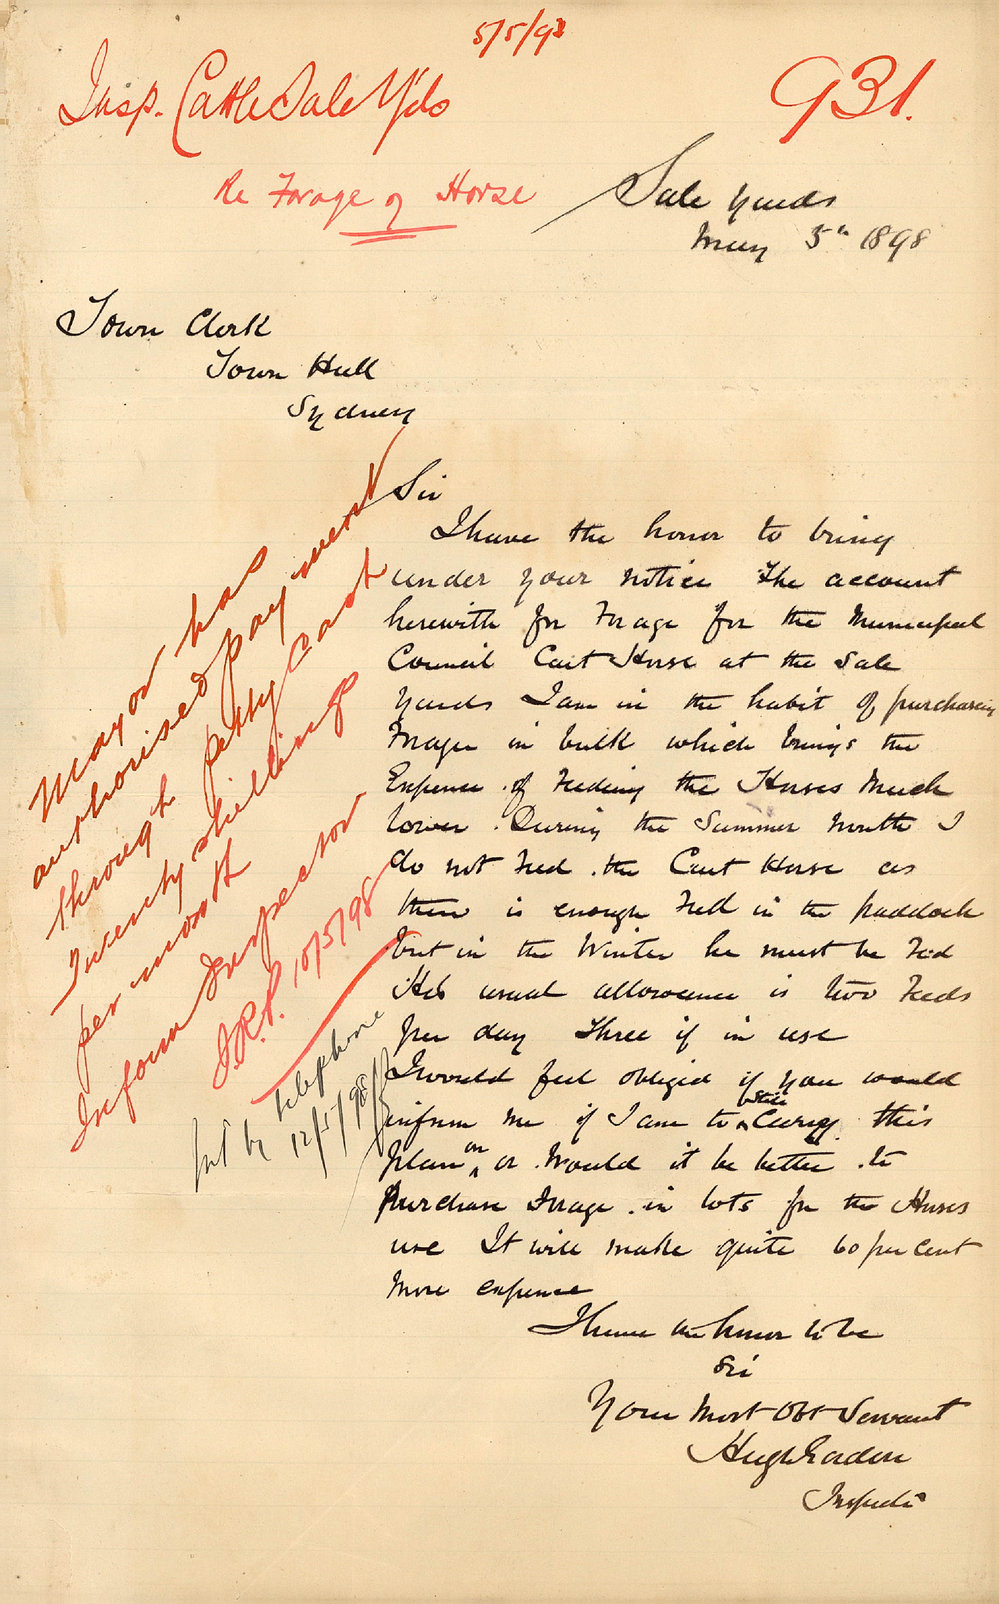 5/5/98
Insp. Cattle Sale Yds
931.
Re Forage of Horse
Sale yards
May 5th 1898
Town Clerk
Town Hall
Sydney
Sir
I have the honor to bring
under your notice the account
herewith for Forage for the Municipal
Council Cart Horse at the Sale
yards I am in the habit of purchasing
Forage in bulk which brings the
Expense of Feeding the Horses Much
lower. During the Summer Month I
do not Feed the Cart Horse as
there is enough Feed in the paddock
but in the Winter he must be Fed
His usual allowance is two Feeds
per day Three if in use
I would feel obliged if you would
inform me if I am to still Carry this
plan on or Would it be better to
Purchase Forage in lots for the Horses
use It will make quite 60 per cent
More expense
I have the honor to be
Sir
Your Most Obt Servant
Hugh Gordon
Inspector
Mayor has
authorised payment
through petty Cash
Twenty shillings
per month
Inform Inspector
10/5/98
by telephone
12/5/98